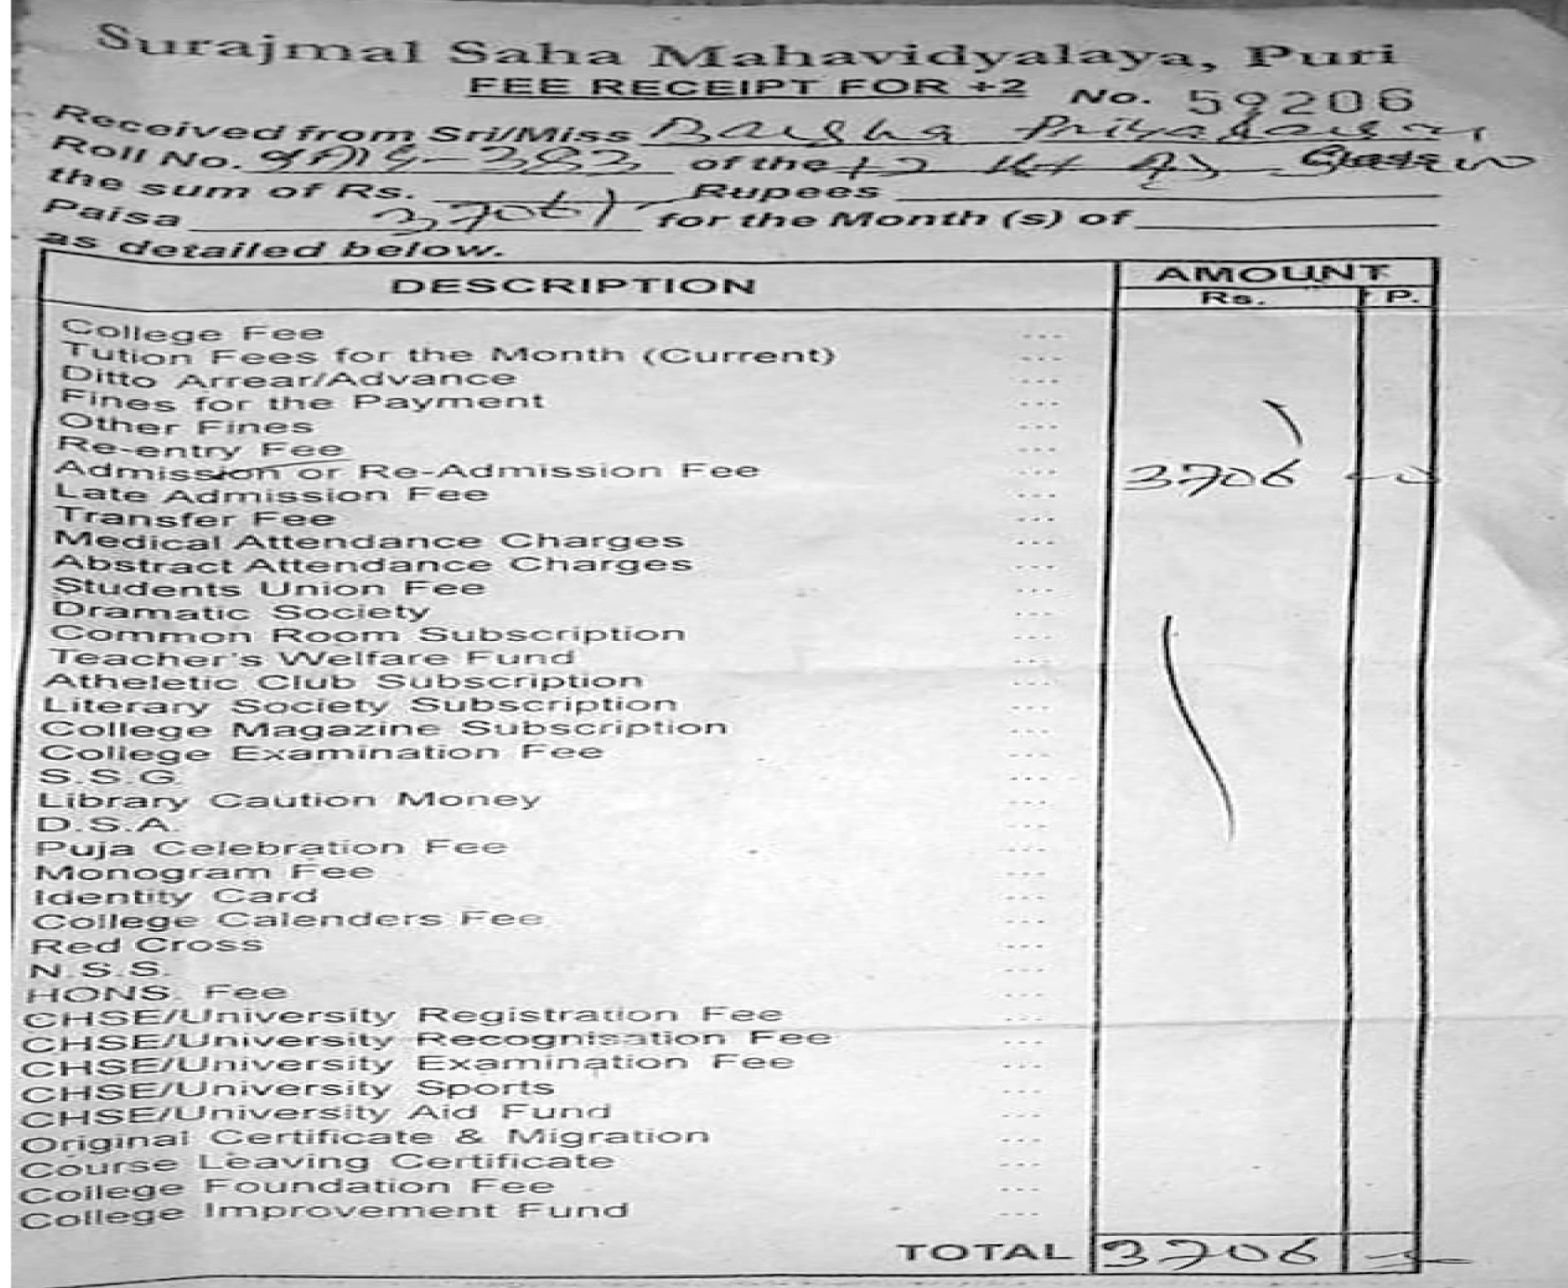 Surajmal Saha Mahavidyalaya, Puri
FEE RECEIPT FOR +2 No. 59206
Received from Sri/Miss Barsha Priyadarsini
Roll No. of the +2 Class in
the sum of Rs. Rupees
Paisa 3706/- for the Month (s) of
as detailed below.
DESCRIPTION AMOUNT
Rs. P.
College Fee ...
Tution Fees for the Month (Current) ...
Ditto Arrear/Advance ...
Fines for the Payment ...
Other Fines ...
Re-entry Fee ...
Admission or Re-Admission Fee ... 3706
Late Admission Fee ...
Transfer Fee ...
Medical Attendance Charges ...
Abstract Attendance Charges ...
Students Union Fee ...
Dramatic Society ...
Common Room Subscription ...
Teacher's Welfare Fund ...
Atheletic Club Subscription ...
Literary Society Subscription ...
College Magazine Subscription ...
College Examination Fee ...
S.S.G. ...
Library Caution Money ...
D.S.A. ...
Puja Celebration Fee ...
Monogram Fee ...
Identity Card ...
College Calenders Fee ...
Red Cross ...
N.S.S. ...
HONS. Fee ...
CHSE/University Registration Fee ...
CHSE/University Recognisation Fee ...
CHSE/University Examination Fee ...
CHSE/University Sports ...
CHSE/University Aid Fund ...
Original Certificate & Migration ...
Course Leaving Certificate ...
College Foundation Fee ...
College Improvement Fund ...
TOTAL 3706